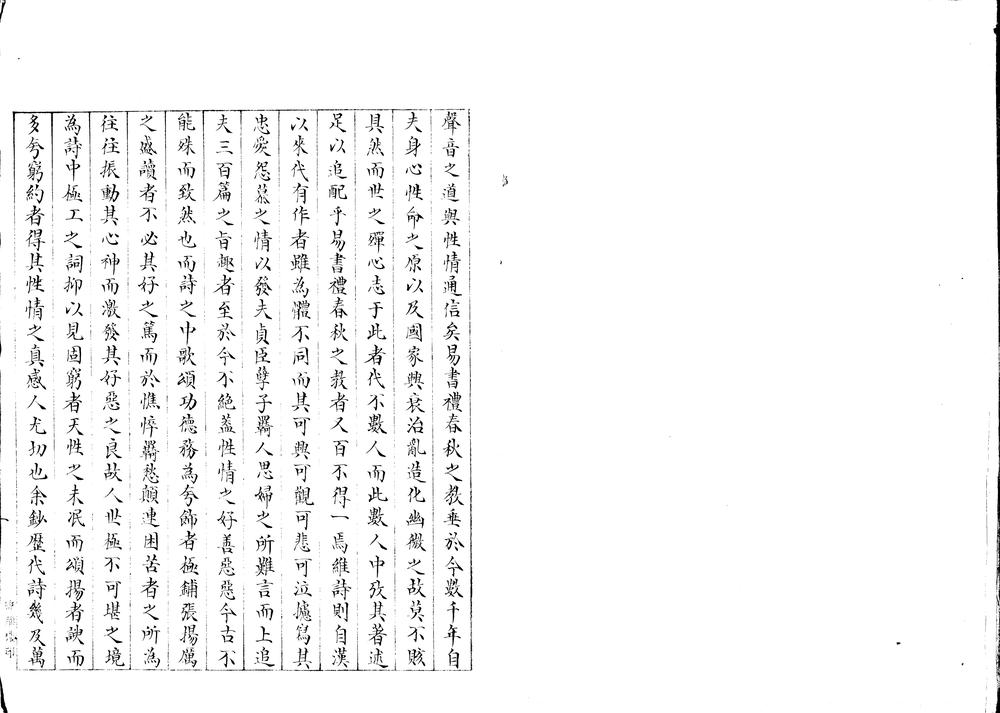 聲音之道與性情通信矣易書禮春秋之教垂於今數千年自
夫身心性命之原以及國家興衰治亂造化幽微之故莫不賅
具然而世之殫心志于此者代不數人而此數人中攷其著述
足以追配乎易書禮春秋之教者又百不得一焉維詩則自漢
以來代有作者雖為體不同而其可興可觀可悲可泣攄寫其
忠爱怨慕之情以發夫貞臣孽子羇人思婦之所難言而上追
夫三百篇之旨趣者至於今不絕蓋性情之好善惡惡今古不
能殊而致然也而詩之中歌頌功德務為夸飾者極鋪張揚厲
之盛讀者不必其好之篤而於憔悴羇愁顛連困苦者之所為
往往振動其心神而激發其好惡之良故人世極不可堪之境
為詩中極工之詞抑以見固窮者天性之未泯而頌揚者諛而
多夸窮約者得其性情之真感人尤切也余鈔歷代詩幾及萬